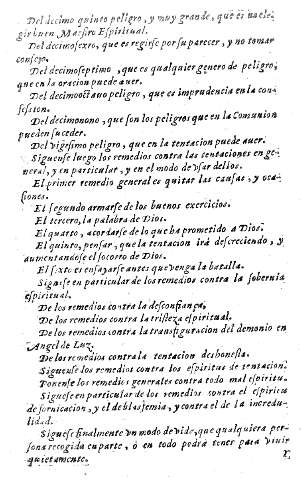 Del decimo quinto peligro, y muy grande, que es no ele-
gir buen Maestro Espiritual.
Del decimosexto, que es regirse por su parecer, y no tomar
consejo.
Del decimoseptimo, que es qualquier genero de peligro,
que en la oracion puede auer.
Del decimooctauo peligro, que es imprudencia en la con-
fession.
Del decimonono, que son los peligros que en la Comunion
pueden suceder.
Del vigesimo peligro, que en la tentacion puede auer.
Siguense luego los remedios contra las tentaciones en ge-
neral, y en particular, y en el modo de vsar dellos.
El primer remedio general es quitar las causas, y oca-
siones.
El segundo armarse de los buenos exercicios.
El tercero, la palabra de Dios.
El quarto, acordarse de lo que ha prometido a Dios.
El quinto, pensar, que la tentacion irà descreciendo, y
aumentandose el socorro de Dios.
El sexto es ensayarse antes que venga la batalla.
Siguese en particular de los remedios contra la soberuia
espiritual.
De los remedios contra la desconfiança.
De los remedios contra la tristeza espiritual.
De los remedios contra la transfiguracion del demonio en
Angel de Luz.
De los remedios contra la tentacion deshonesta.
Siguense los remedios contra los espiritus de tentacion.
Ponense los remedios generales contra todo mal espiritu.
Siguese en particular de los remedios contra el espiritu
de fornicacion, y el de blasfemia, y contra el de la incredu-
lidad.
Siguese finalmente vn modo de vida, que qualquiera per-
sona recogida en parte, ò en todo podrà tener para viuir
quietamente.